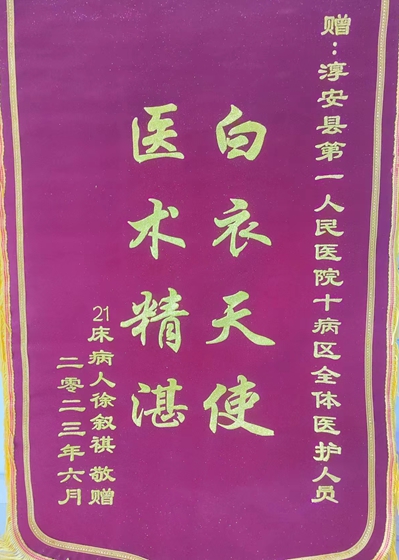 赠：淳安县第一人民医院十病区全体医护人员
白衣天使
医术精湛
21床病人徐叙祺 敬赠
二零二三年六月